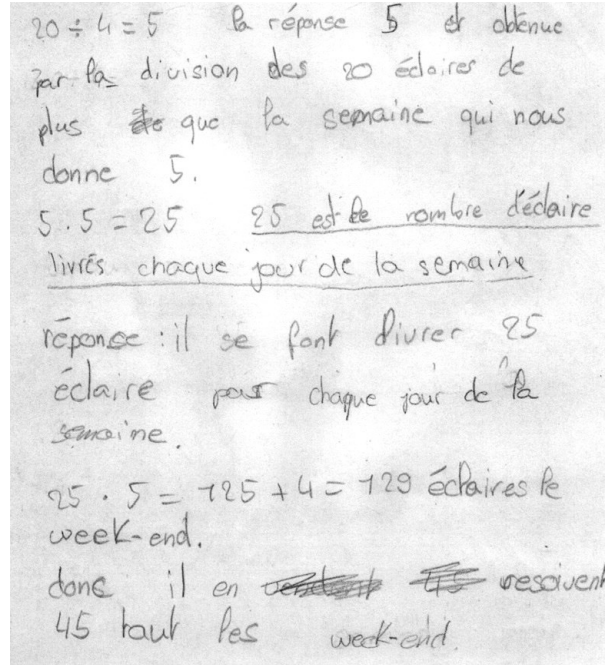 20 ÷ 4 = 5 la réponse 5 et obtenue
par la division des 20 éclaires de
plus que la semaine qui nous
donne 5.
5 . 5 = 25 25 est le nombre d'éclaire
livrés chaque jour de la semaine
réponse : il se font livrer 25
éclaire pour chaque jour de la
semaine.
25 . 5 = 125 + 4 = 129 éclaires le
week-end.
donc il en resoivent
45 taut les week-end.